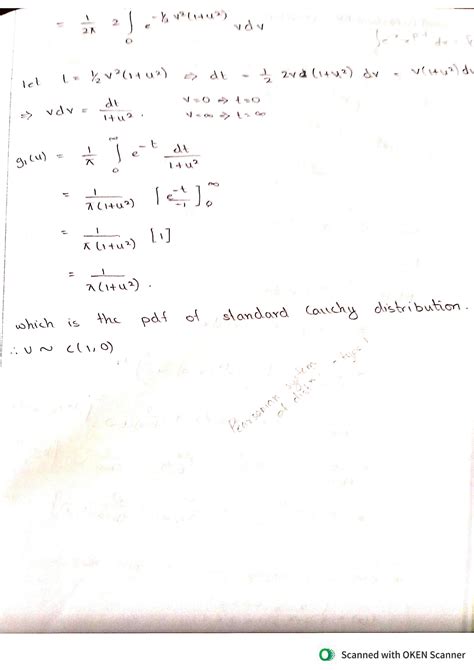 = 1/2π 2 ∫₀ e^(-½ v²(1+u²)) vdv
let t = ½ v²(1+u²) ⇒ dt = 1/2 2vd(1+u²) dv = v(1+u²) dv
⇒ vdv = dt/(1+u²) . v=0 ⇒ t=0
v=∞ ⇒ t=∞
g₁(u) = 1/π ∫₀^∞ e^(-t) dt/(1+u²)
= 1/(π(1+u²)) [e^(-t)/-1]₀^∞
= 1/(π(1+u²)) [1]
= 1/(π(1+u²)) .
which is the pdf of standard Cauchy distribution.
∴ U ~ C(1,0)
Pearsonian system
of
Scanned with OKEN Scanner